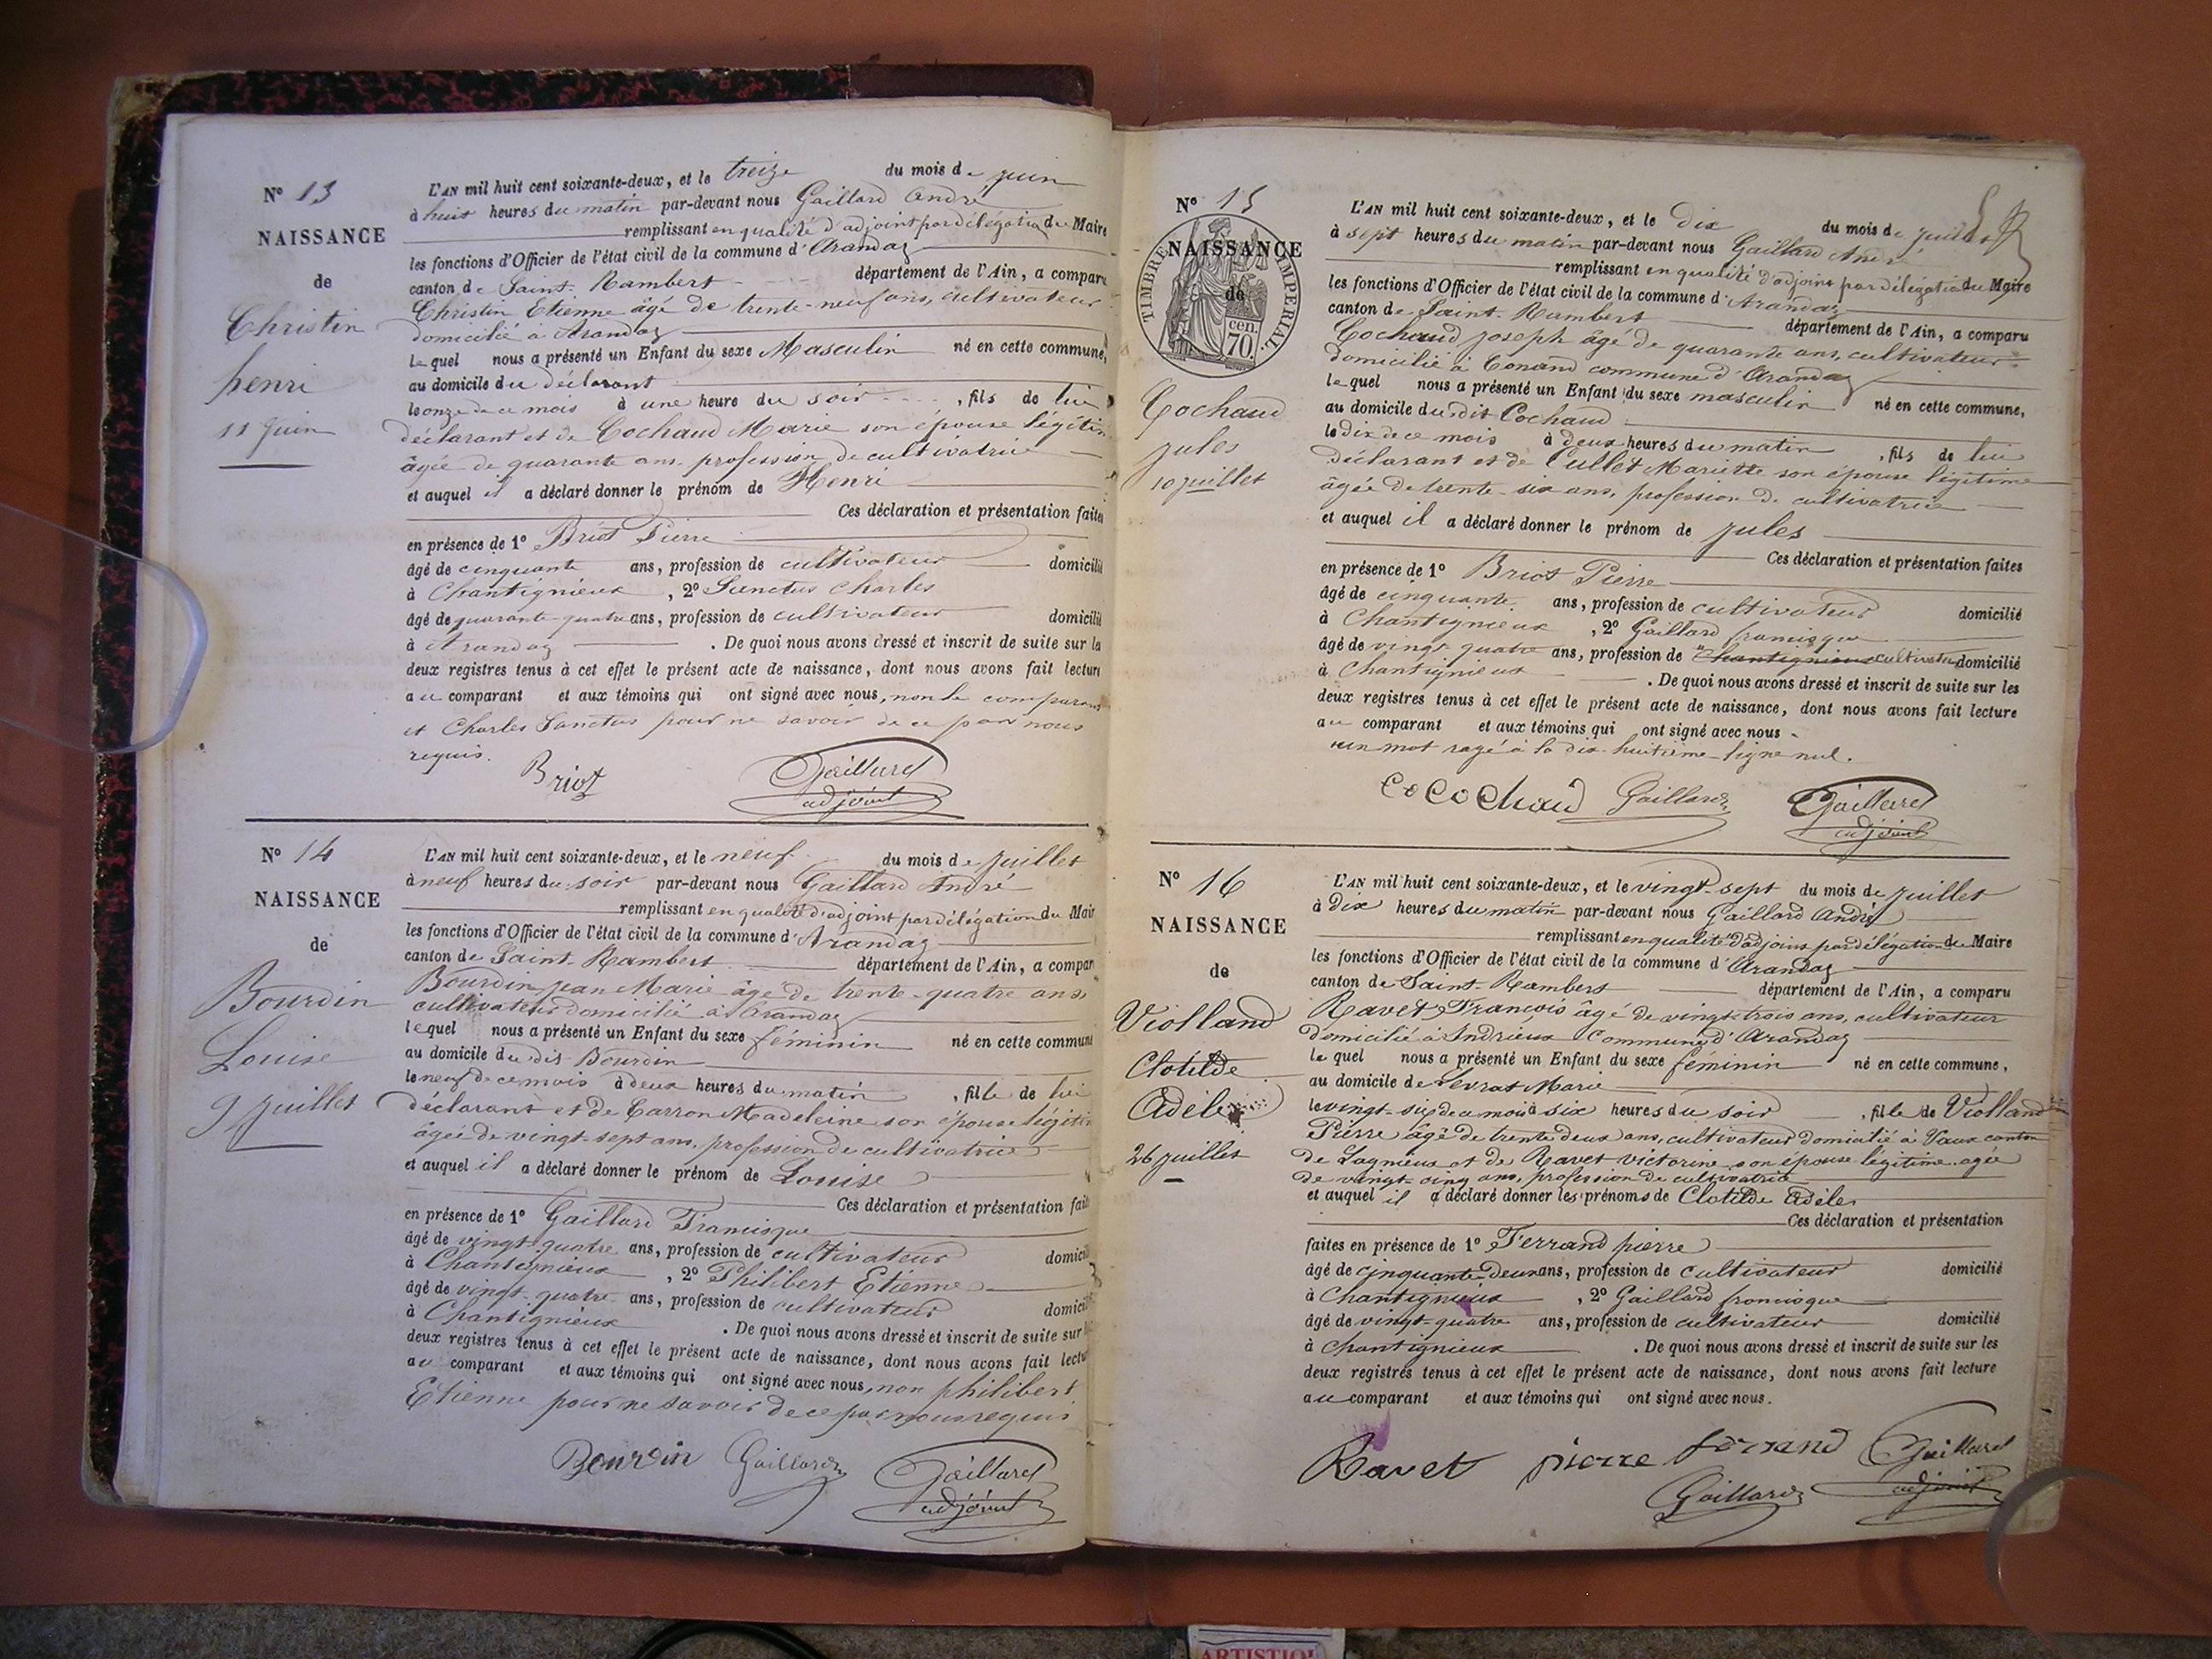 N° 13
NAISSANCE
de
Christin
henri
11 Juin
L'AN mil huit cent soixante-deux, et le treize du mois de juin
à huit heures du matin par-devant nous Gaillard André
remplissant en qualité d'adjoint par délégation du Maire
les fonctions d'Officier de l'état civil de la commune d'Arandas
canton de Saint-Rambert département de l'Ain, a comparu
Christin Etienne âgé de trente-neuf ans, cultivateur
domicilié à Arandas
lequel nous a présenté un Enfant du sexe Masculin né en cette commune,
au domicile du déclarant
le onze de ce mois à une heure du soir , fils de lui
déclarant et de Cochaud Marie son épouse légitim
âgée de quarante ans profession de cultivatrice
et auquel il a déclaré donner le prénom de Henri
Ces déclaration et présentation faites
en présence de 1° Briot Pierre
âgé de cinquante ans, profession de cultivateur domicilié
à Chantignieux , 2° Sanctus Charles
âgé de quarante-quatre ans, profession de cultivateur domicilié
à Arandas . De quoi nous avons dressé et inscrit de suite sur la
deux registres tenus à cet effet le présent acte de naissance, dont nous avons fait lecture
au comparant et aux témoins qui ont signé avec nous, non le comparant
et Charles Sanctus pour ne savoir de ce par nous
requis.
Briot Gaillard
adjoint
N° 14
NAISSANCE
de
Bourdin
Louise
9 juillet
L'AN mil huit cent soixante-deux, et le neuf du mois de juillet
à neuf heures du soir par-devant nous Gaillard André
remplissant en qualité d'adjoint par délégation du Mair
les fonctions d'Officier de l'état civil de la commune d'Arandas
canton de Saint-Rambert département de l'Ain, a compar
Bourdin jean Marie âgé de trente-quatre ans
cultivateur domicilié à Arandas
lequel nous a présenté un Enfant du sexe féminin né en cette commune
au domicile du dit Bourdin
le neuf de ce mois à deux heures du matin , fille de lui
déclarant et de Carron Madeleine son épouse légitim
âgée de vingt-sept ans, profession de cultivatrice
et auquel il a déclaré donner le prénom de Louise
Ces déclaration et présentation fait
en présence de 1° Gaillard Francisque
âgé de vingt-quatre ans, profession de cultivateur domicili
à Chantignieux , 2° Philibert Etienne
âgé de vingt-quatre ans, profession de cultivateur domicil
à Chantignieux . De quoi nous avons dressé et inscrit de suite sur
deux registres tenus à cet effet le présent acte de naissance, dont nous avons fait lectu
au comparant et aux témoins qui ont signé avec nous, non philibert
Etienne pour ne savoir de ce par nous requis
Bourdin Gaillard Gaillard
adjoint
N° 15
NAISSANCE
de
TIMBRE IMPERIAL
70 cen.
Cochaud
jules
10 juillet
L'AN mil huit cent soixante-deux, et le dix du mois de juillet
à sept heures du matin par-devant nous Gaillard André
remplissant en qualité d'adjoint par délégation du Maire
les fonctions d'Officier de l'état civil de la commune d'Arandas
canton de Saint-Rambert département de l'Ain, a comparu
Cochaud joseph âgé de quarante ans, cultivateur
domicilié à Conand commune d'Arandas
lequel nous a présenté un Enfant du sexe masculin né en cette commune,
au domicile du dit Cochaud
le dix de ce mois à deux heures du matin , fils de lui
déclarant et de Cullet Mariette son épouse légitime
âgée de trente-six ans, profession de cultivatrice
et auquel il a déclaré donner le prénom de jules
Ces déclaration et présentation faites
en présence de 1° Briot Pierre
âgé de cinquante ans, profession de cultivateur domicilié
à Chantignieux , 2° Gaillard francisque
âgé de vingt quatre ans, profession de Chantignieux cultivateur domicilié
à Chantignieux . De quoi nous avons dressé et inscrit de suite sur les
deux registres tenus à cet effet le présent acte de naissance, dont nous avons fait lecture
au comparant et aux témoins qui ont signé avec nous
un mot rayé à la dix-huitième ligne nul.
Cochaud Gaillard Gaillard
adjoint
N° 16
NAISSANCE
de
Violland
Clotilde
Adèle
26 juillet
L'AN mil huit cent soixante-deux, et le vingt-sept du mois de juillet
à dix heures du matin par-devant nous Gaillard André
remplissant en qualité d'adjoint par délégation du Maire
les fonctions d'Officier de l'état civil de la commune d'Arandas
canton de Saint-Rambert département de l'Ain, a comparu
Ravet François âgé de vingt-trois ans, cultivateur
domicilié à Indrieux Commune d'Arandas
lequel nous a présenté un Enfant du sexe féminin né en cette commune,
au domicile de Sevrat Marie
le vingt-six de ce mois à six heures du soir , fille de Violland
Pierre âgé de trente deux ans, cultivateur domicilié à Vaux canton
de Lagnieux et de Ravet victorine son épouse légitime agée
de vingt-cinq ans, profession de cultivatrice
et auquel il a déclaré donner les prénoms de Clotilde Adèle
Ces déclaration et présentation
faites en présence de 1° Ferrand pierre
âgé de cinquante-deux ans, profession de cultivateur domicilié
à Chantignieux , 2° Gaillard francisque
âgé de vingt-quatre ans, profession de cultivateur domicilié
à Chantignieux . De quoi nous avons dressé et inscrit de suite sur les
deux registres tenus à cet effet le présent acte de naissance, dont nous avons fait lecture
au comparant et aux témoins qui ont signé avec nous.
Ravet pierre ferrand Gaillard
Gaillard adjoint
ARTISTIQU